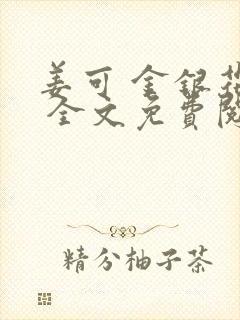 姜可 金銀花
全文免費閱
精分柚子茶